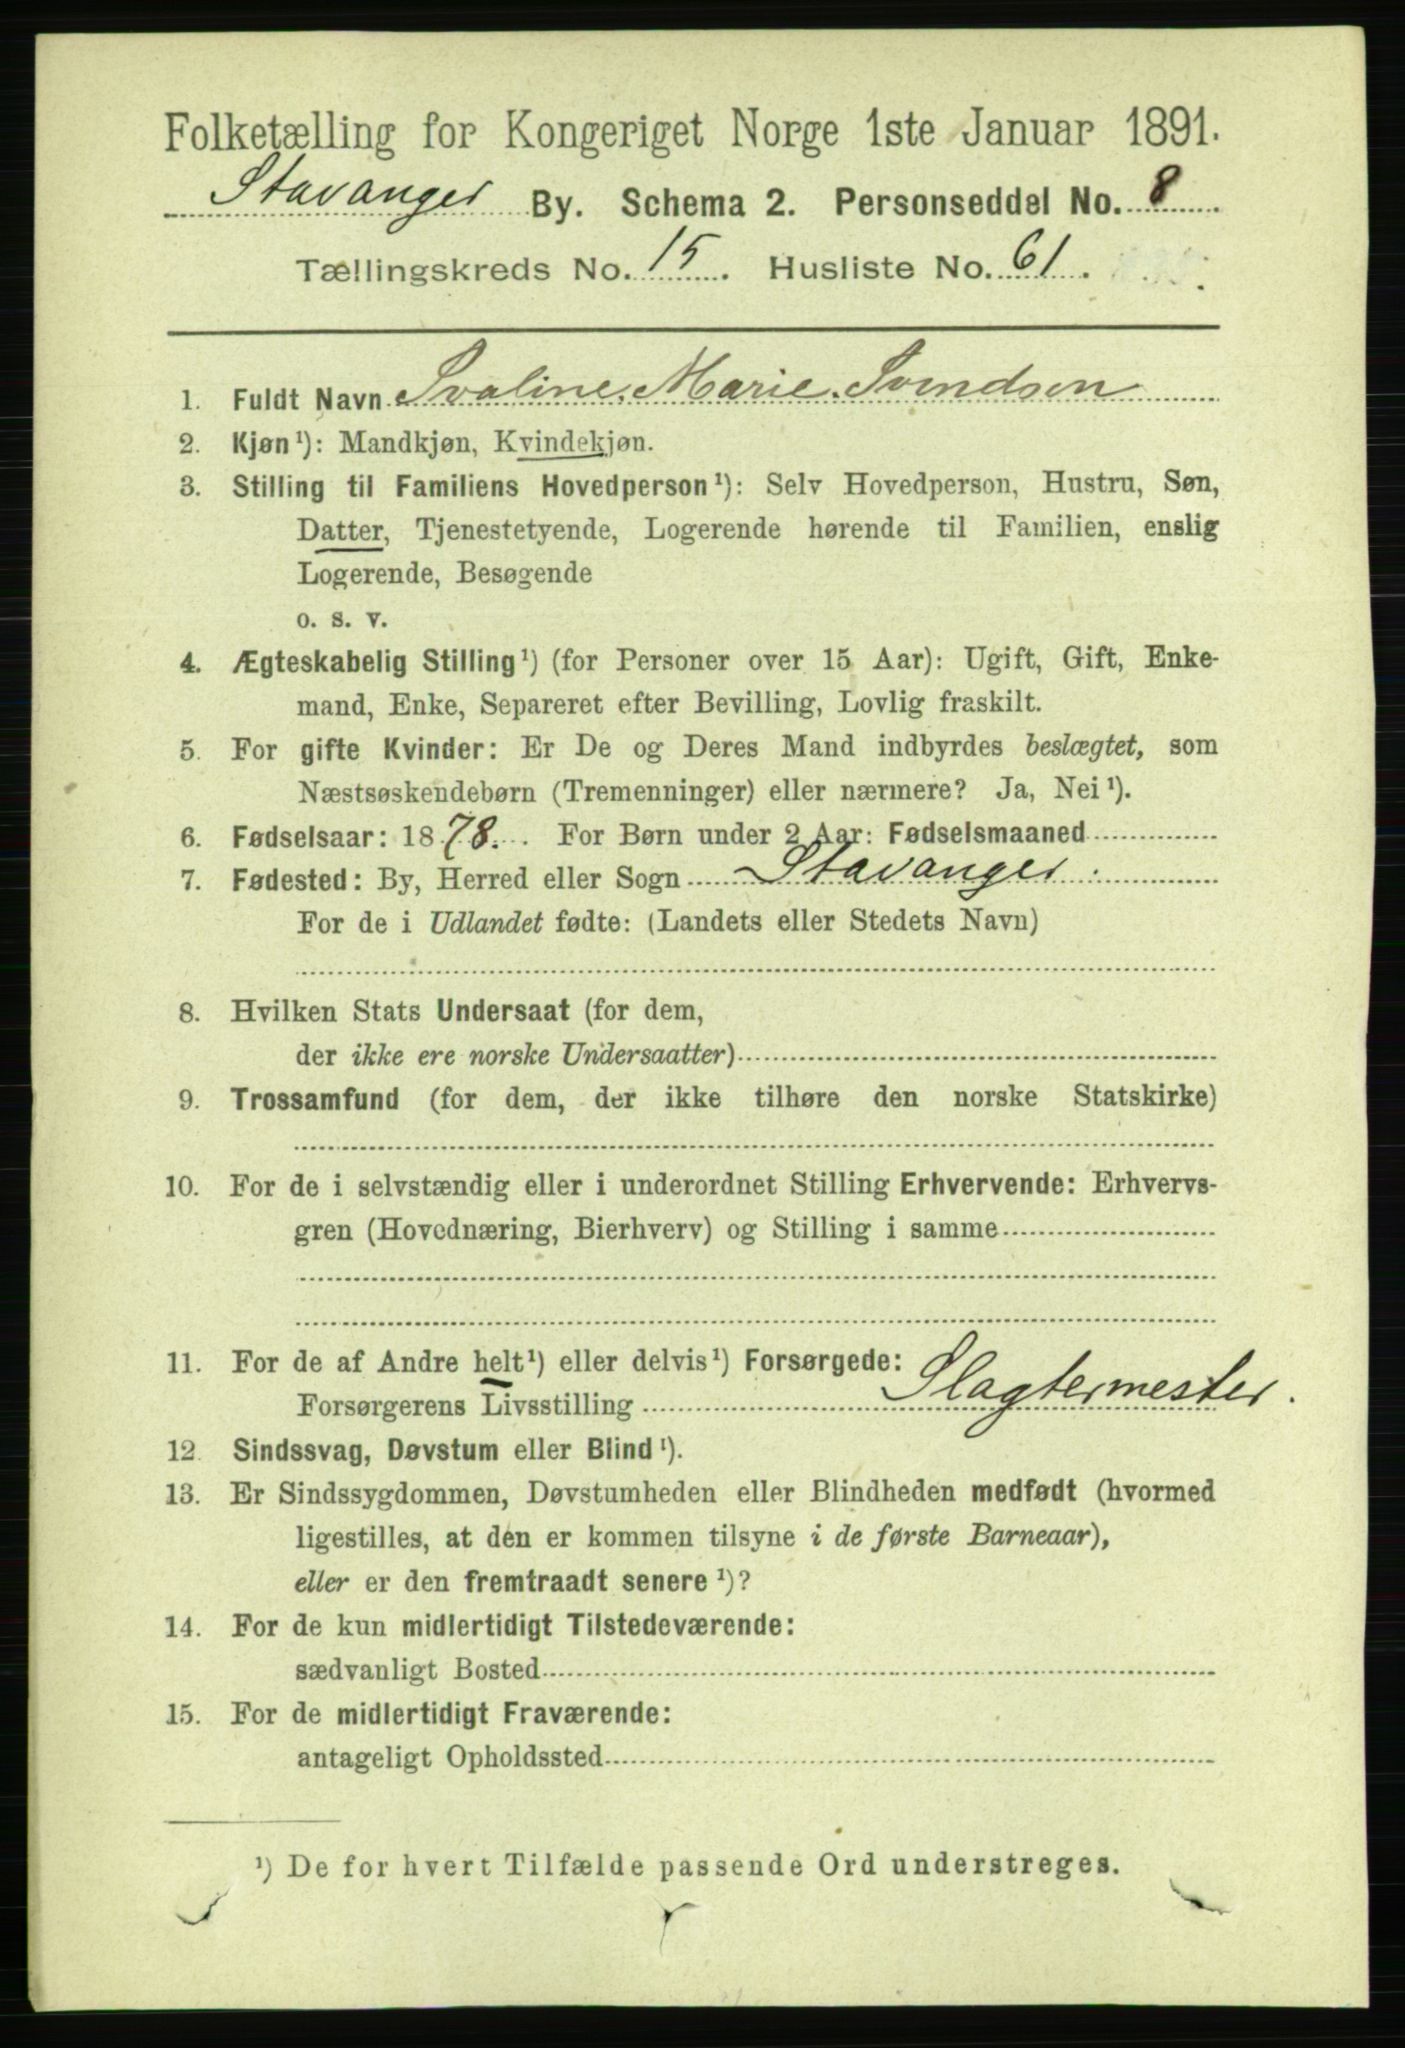 Folketælling for Kongeriget Norge 1ste Januar 1891.
Stavanger By. Schema 2. Personseddel No. 8
Tællingskreds No. 15. Husliste No. 61.
1. Fuldt Navn Svaline Marie Svendsen
2. Kjøn¹): Mandkjøn, Kvindekjøn.
3. Stilling til Familiens Hovedperson¹): Selv Hovedperson, Hustru, Søn,
Datter, Tjenestetyende, Logerende hørende til Familien, enslig
Logerende, Besøgende
o. s. v.
4. Ægteskabelig Stilling¹) (for Personer over 15 Aar): Ugift, Gift, Enke-
mand, Enke, Separeret efter Bevilling, Lovlig fraskilt.
5. For gifte Kvinder: Er De og Deres Mand indbyrdes beslægtet, som
Næstsøskendebørn (Tremenninger) eller nærmere? Ja, Nei¹).
6. Fødselsaar: 1878. For Børn under 2 Aar: Fødselsmaaned
7. Fødested: By, Herred eller Sogn Stavanger
For de i Udlandet fødte: (Landets eller Stedets Navn)
8. Hvilken Stats Undersaat (for dem,
der ikke ere norske Undersaatter)
9. Trossamfund (for dem, der ikke tilhøre den norske Statskirke)
10. For de i selvstændig eller i underordnet Stilling Erhvervende: Erhvervs-
gren (Hovednæring, Bierhverv) og Stilling i samme
11. For de af Andre helt¹) eller delvis¹) Forsørgede:
Forsørgerens Livsstilling Slagtermester.
12. Sindssvag, Døvstum eller Blind¹).
13. Er Sindssygdommen, Døvstumheden eller Blindheden medfødt (hvormed
ligestilles, at den er kommen tilsyne i de første Barneaar),
eller er den fremtraadt senere¹)?
14. For de kun midlertidigt Tilstedeværende:
sædvanligt Bosted
15. For de midlertidigt Fraværende:
antageligt Opholdssted
¹) De for hvert Tilfælde passende Ord understreges.